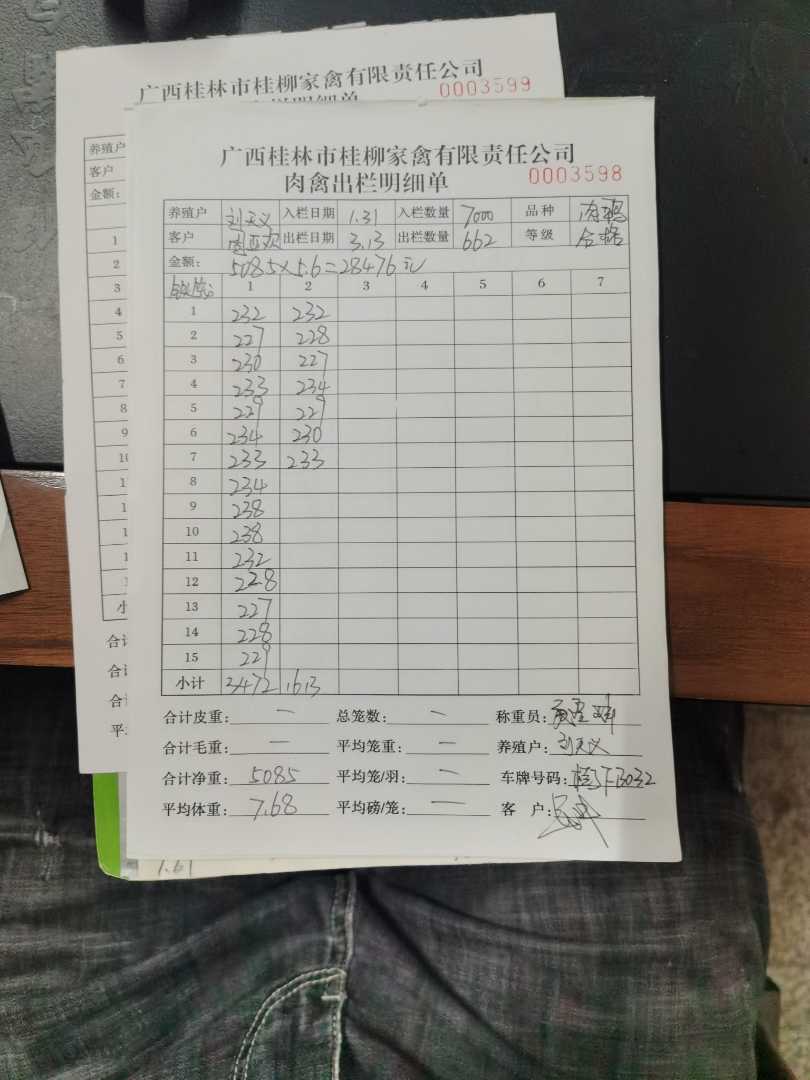 广西桂林市桂柳家禽有限责任公司
0003599
养殖户
客户
金额:
1
2
3
4
5
6
7
8
9
10
合计
合计
合计
平
广西桂林市桂柳家禽有限责任公司
肉禽出栏明细单 0003598
养殖户 刘天义 入栏日期 1.31 入栏数量 7000 品种 肉鸭
客户 出栏日期 3.13 出栏数量 662 等级 合格
金额: 5085×5.6=28476元
1 2 3 4 5 6 7
1 232 232
2 227 228
3 230 227
4 233 234
5 229 229
6 234 230
7 233 233
8 234
9 238
10 238
11 232
12 228
13 227
14 228
15 229
小计 3472 1613
合计皮重: 一 总笼数: 一 称重员:
合计毛重: 一 平均笼重: 一 养殖户: 刘天义
合计净重: 5085 平均笼/羽: 一 车牌号码:
平均体重: 7.68 平均磅/笼: 一 客 户:
1.61